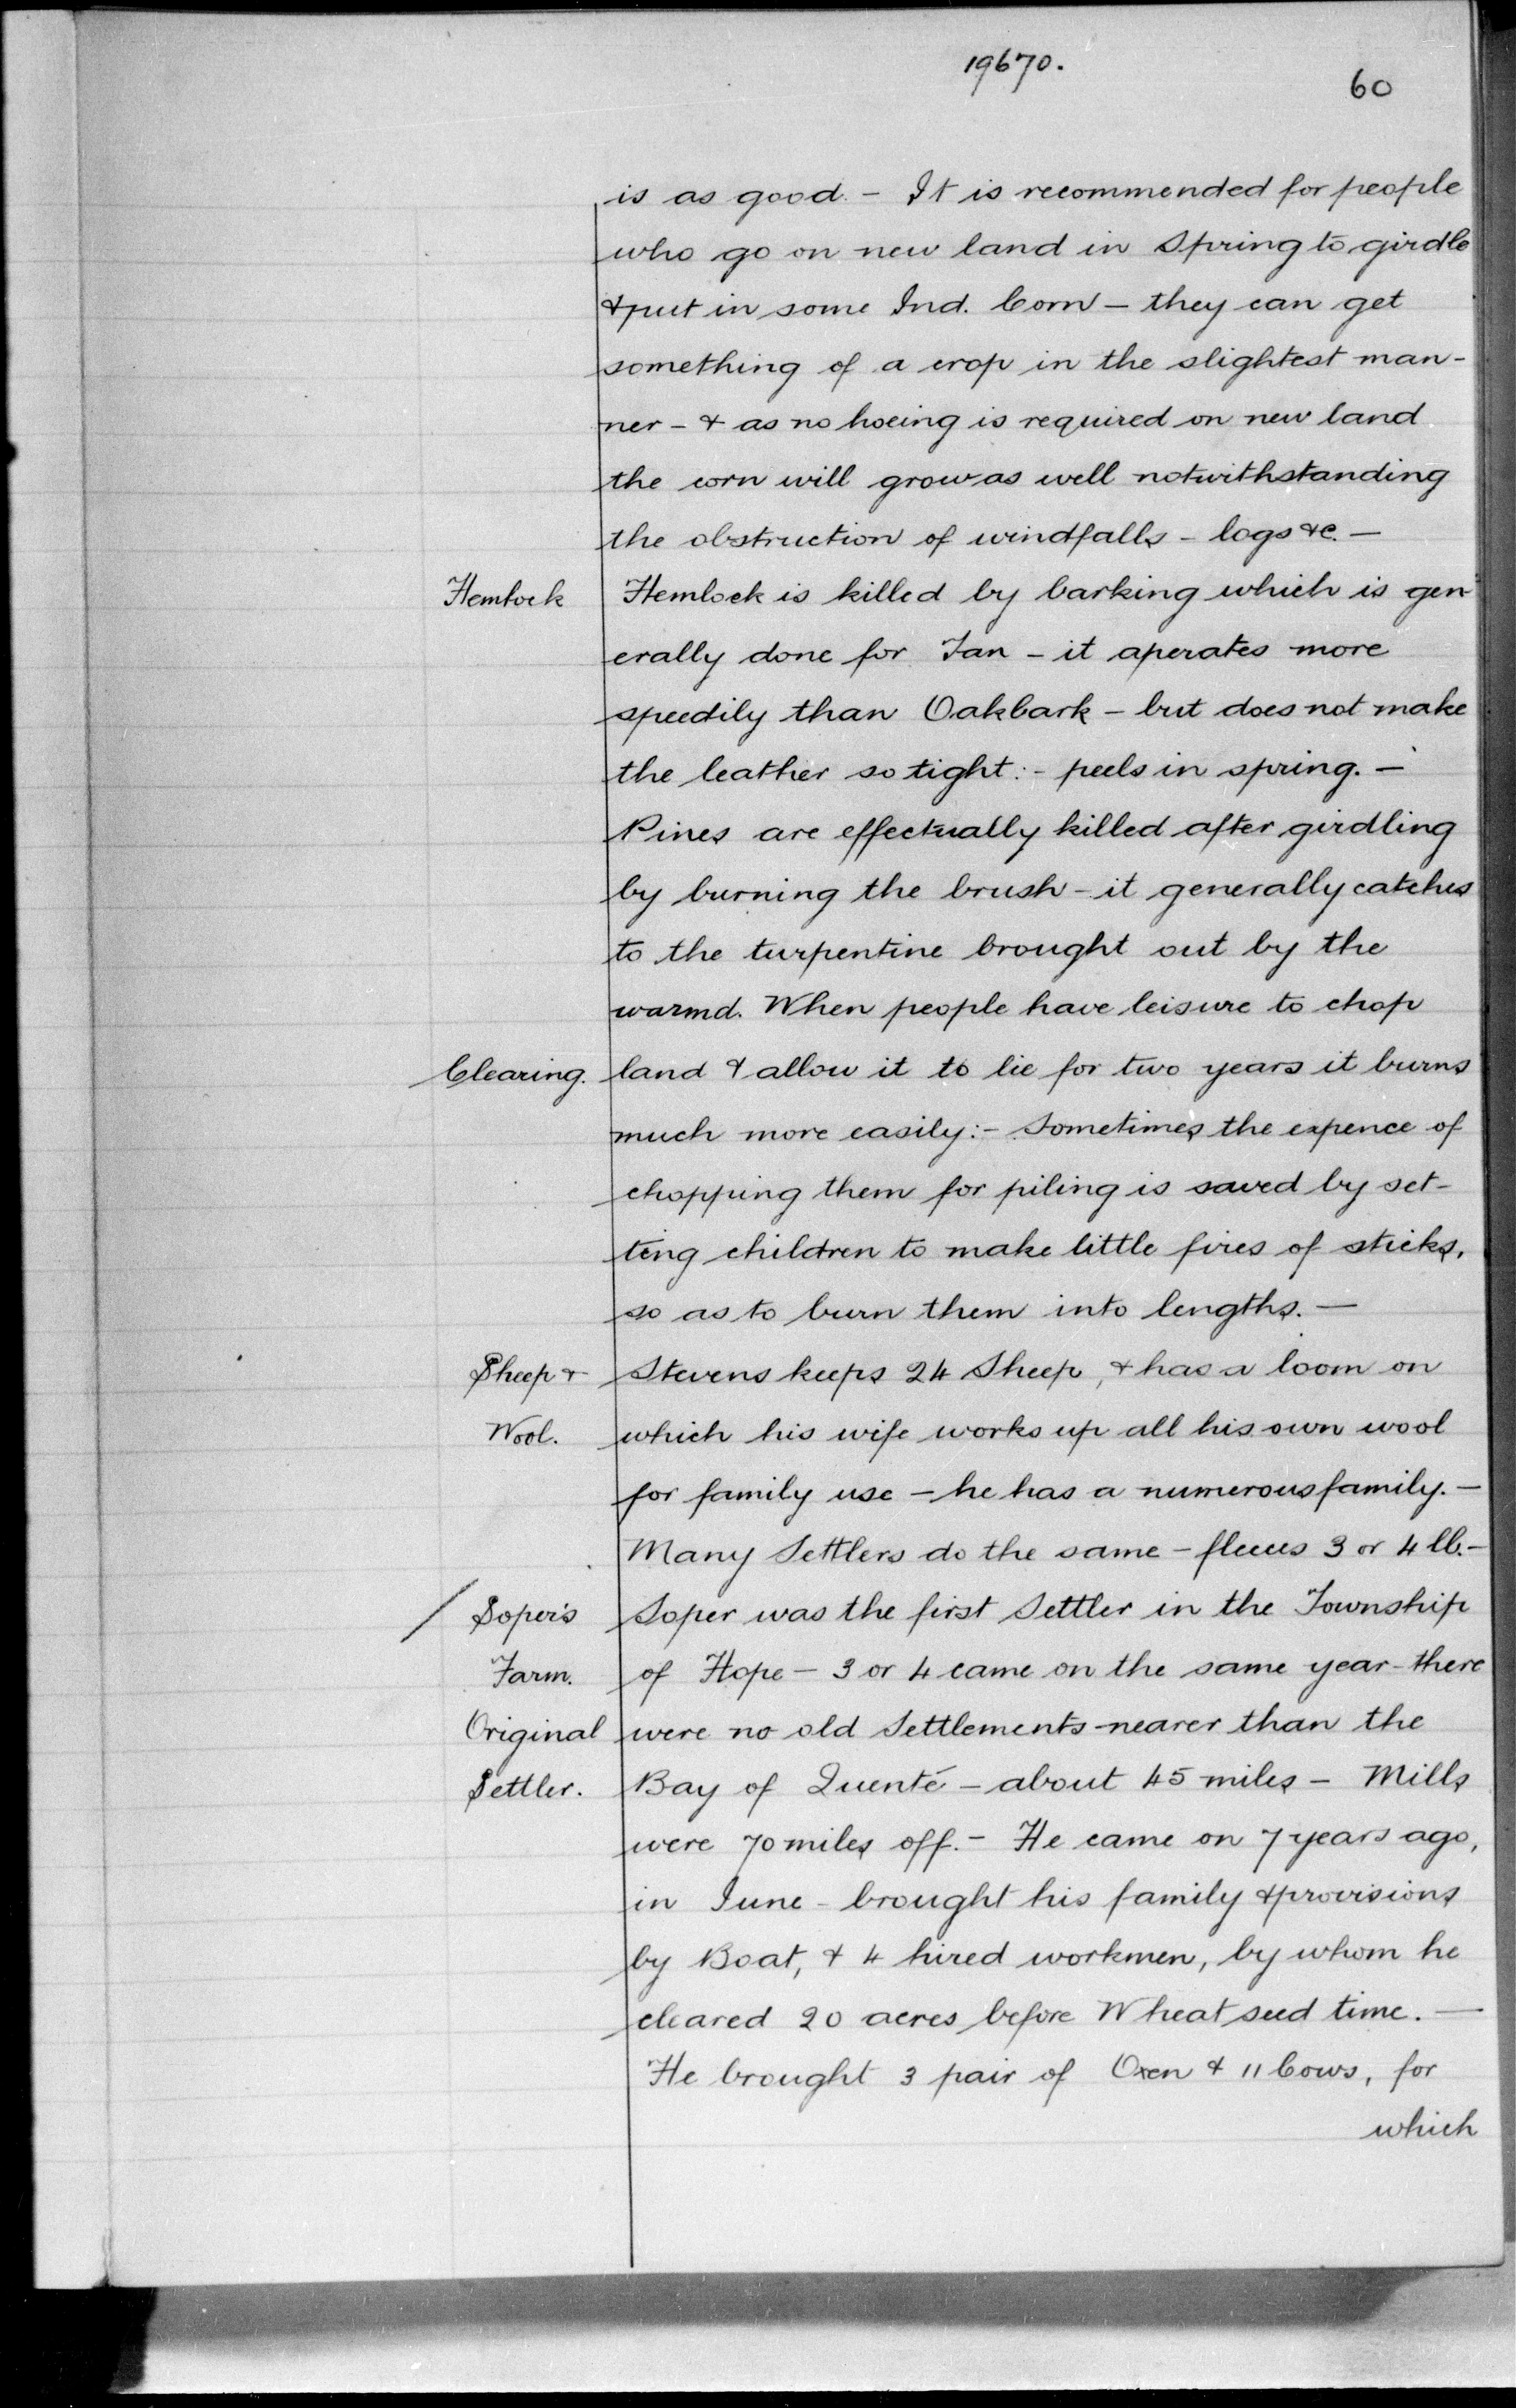 19670.
60
is as good. - It is recommended for people
who go on new land in Spring to girdle
& put in some Ind. Corn - they can get
something of a crop in the slightest man-
ner - & as no hoeing is required on new land
the corn will grow as well notwithstanding
the obstruction of windfalls - logs &c. -
Hemlock Hemlock is killed by barking which is gen-
erally done for Tan - it aperates more
speedily than Oakbark - but does not make
the leather so tight: - peels in spring. -
Pines are effectually killed after girdling
by burning the brush - it generally catches
to the turpentine brought out by the
warmd. When people have leisure to chop
Clearing. land & allow it to lie for two years it burns
much more easily: - Sometimes the expence of
chopping them for piling is saved by set-
ting children to make little fires of sticks,
so as to burn them into lengths. -
Sheep & Stevens keeps 24 Sheep, & has a loom on
Wool. which his wife works up all his own wool
for family use - he has a numerous family. -
Many Settlers do the same - fleeces 3 or 4 lb. -
/ Soper's Soper was the first Settler in the Township
Farm. of Hope - 3 or 4 came on the same year - there
Original were no old Settlements nearer than the
Settler. Bay of Quenté - about 45 miles - Mills
were 70 miles off. - He came on 7 years ago,
in June - brought his family & provisions
by Boat, & 4 hired workmen, by whom he
cleared 20 acres before Wheat seed time. -
He brought 3 pair of Oxen & 11 Cows, for
which